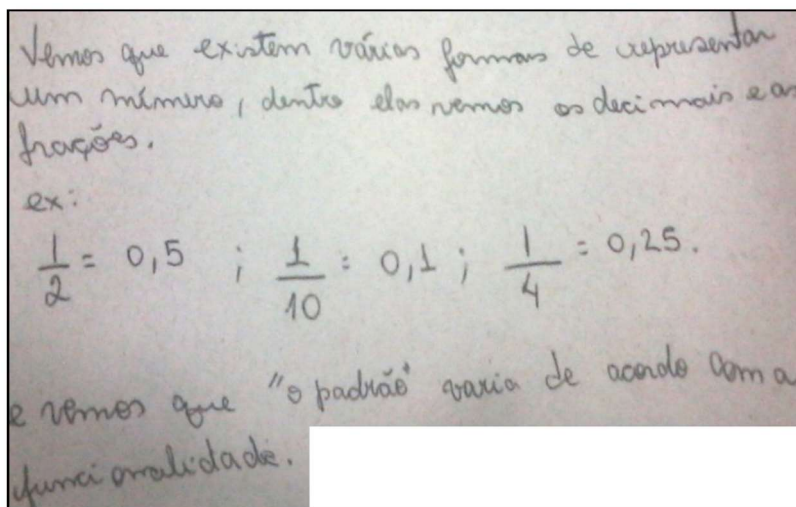 Vemos que existem várias formas de representar
um número, dentre elas vemos os decimais e as
frações.
ex:
1/2 = 0,5 ; 1/10 = 0,1 ; 1/4 = 0,25.
e vemos que "o padrão" varia de acordo com a
funcionalidade.